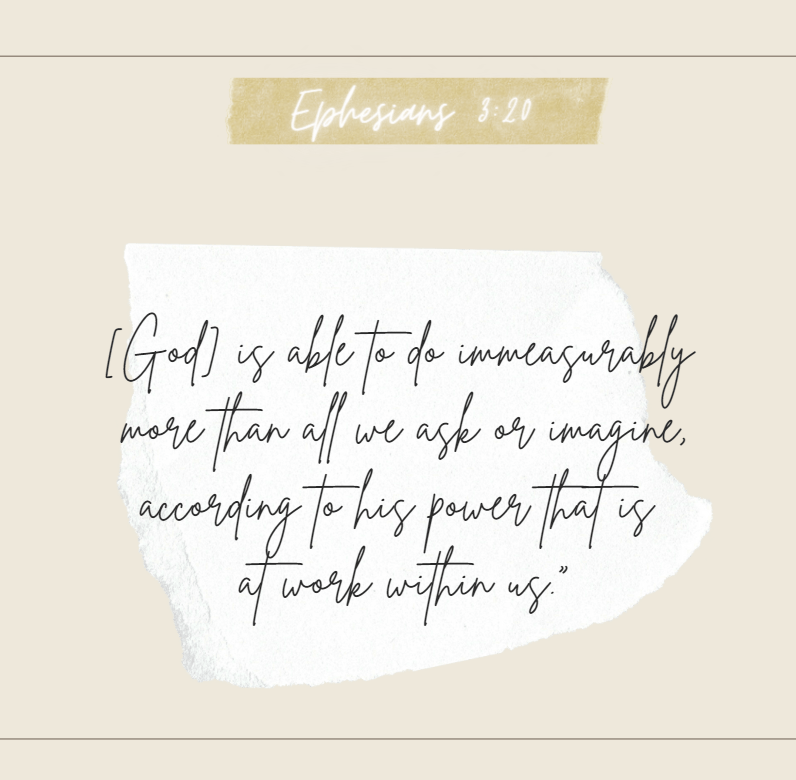 Ephesians 3:20
[God] is able to do immeasurably
more than all we ask or imagine,
according to his power that is
at work within us.”